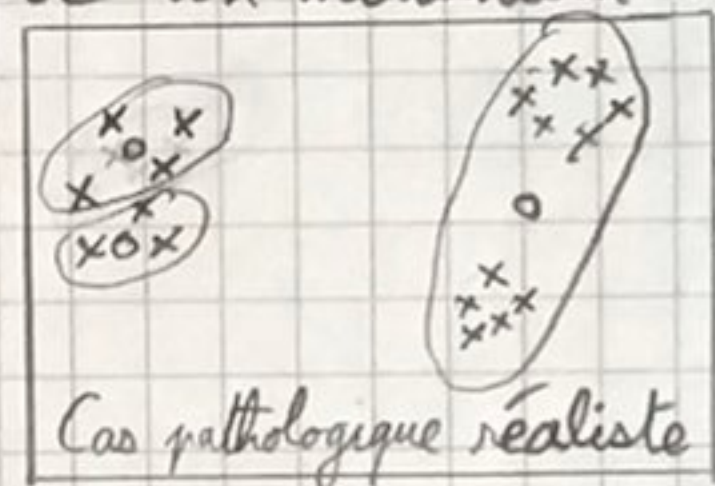 Cas pathologique réaliste